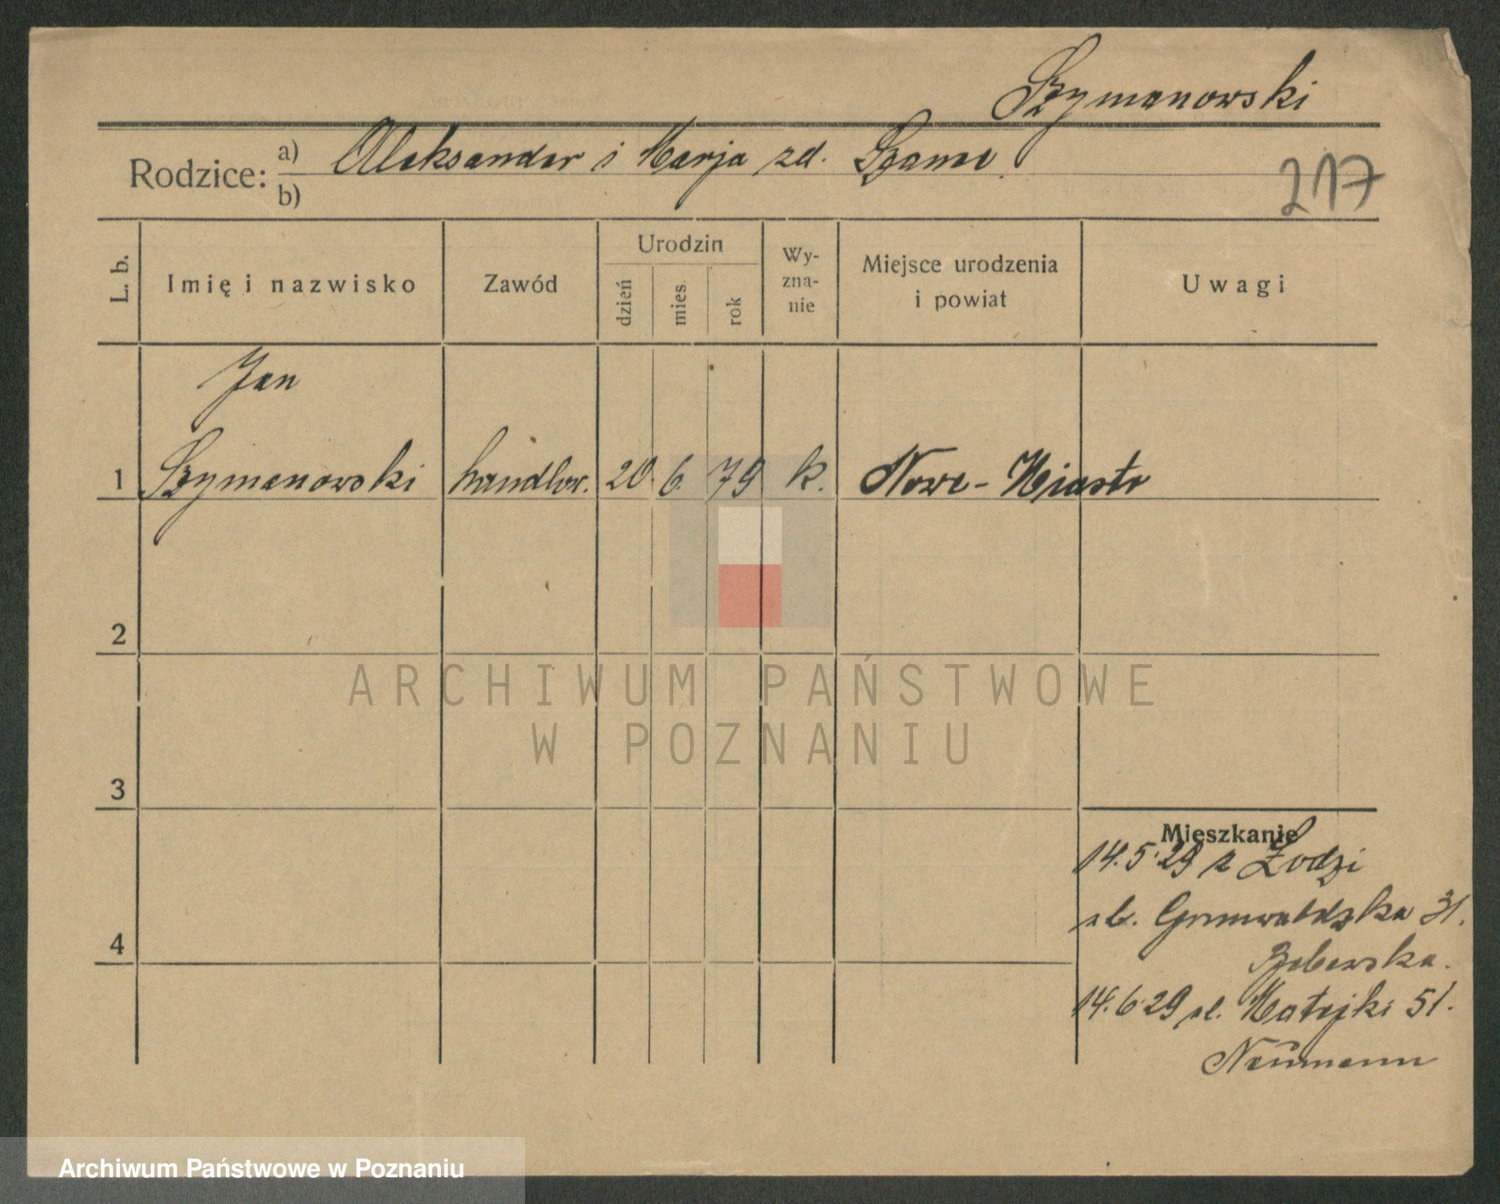 Szymanowski
Rodzice: a) Aleksander i Marja zd.
b)
217
L. b.
Imię i nazwisko
Zawód
Urodzin
dzień
mies.
rok
Wy-
zna-
nie
Miejsce urodzenia
i powiat
Uwagi
Jan
1 Szymanowski handlow. 20. 6. 79 k. Nowe-Miasto
2
ARCHIWUM PAŃSTWOWE
W POZNANIU
3
Mieszkanie
14.5.29 z Łodzi
ul. Grunwaldzka 31.
4
14.6.29 ul. Matejki 51.
Neumann
Archiwum Państwowe w Poznaniu